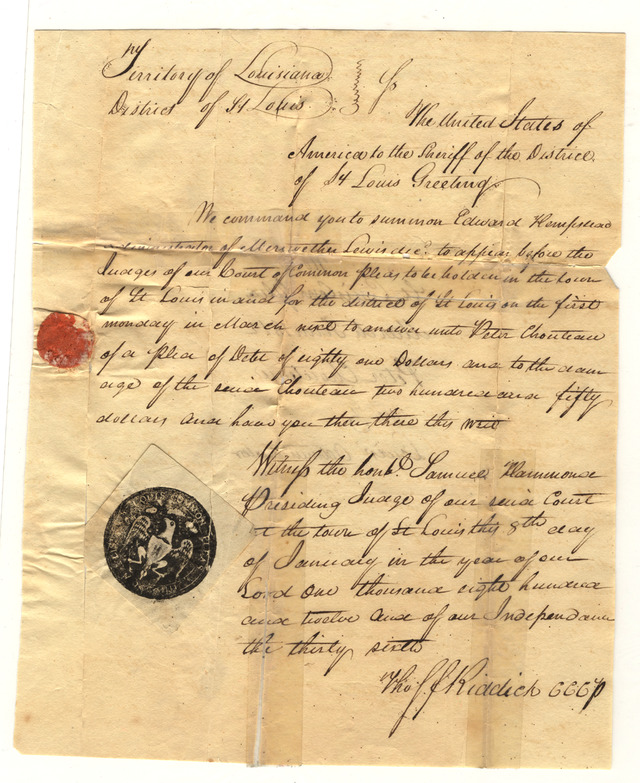 Territory of Louisiana
District of St Louis } ss
The United States of
America to the Sheriff of the District
of St Louis Greeting
We command you to summon Edward Hempstead
administrator of Merriwether Lewis decd. to appear before the
Judges of our Court of Common pleas to be holden in the town
of St Louis in and for the district of St Louis on the first
monday in March next to answer unto Peter Chouteau
of a plea of Debt of eighty one Dollars and to the dam
age of the said Chouteau two hundred and fifty
dollars and have you then there this writ
Witness the honbl. Samuel Hammond
Presiding Judge of our said Court
at the town of St Louis this 8th day
of January in the year of our
Lord one thousand eight hundred
and twelve and of our Independance
the thirty sixth
Tho. F Riddick CCCP